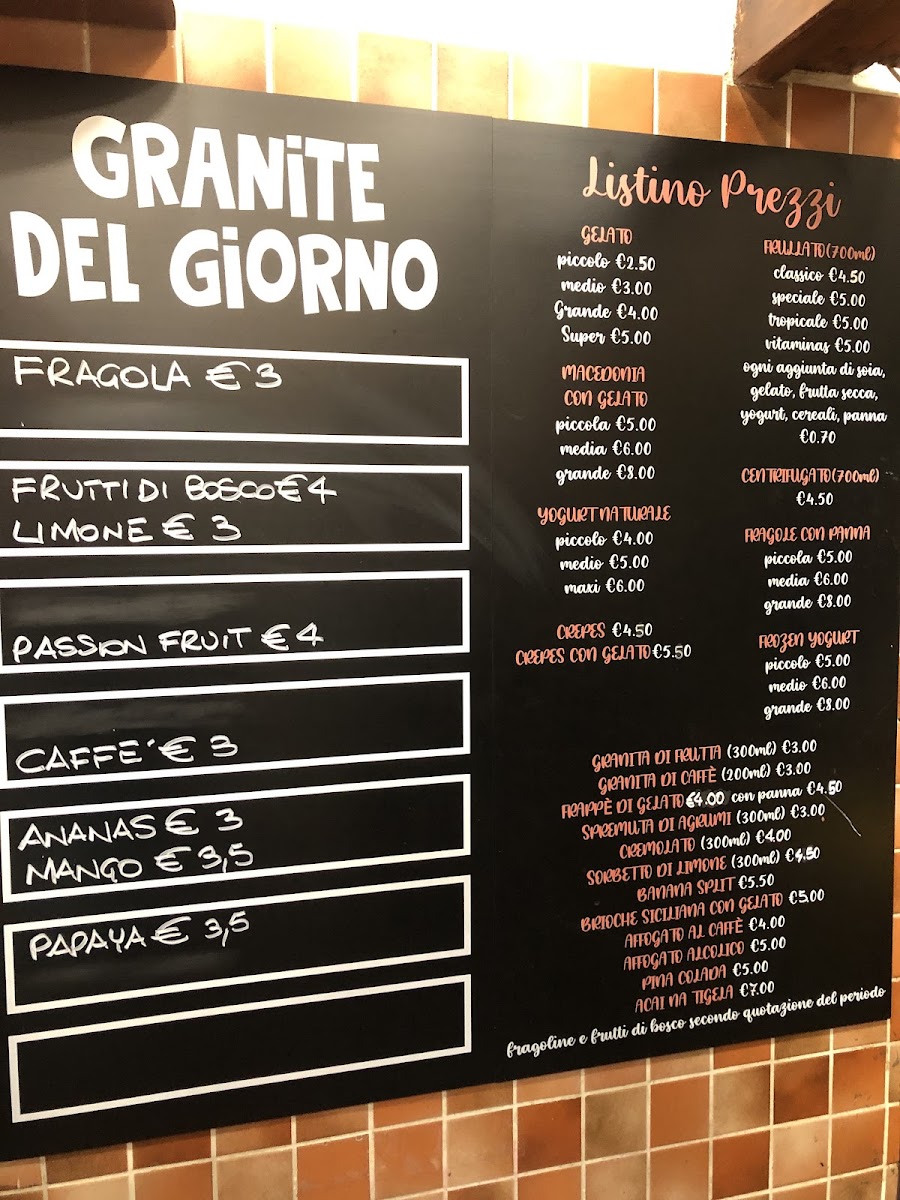 GRANITE
DEL GIORNO
FRAGOLA € 3
FRUTTI DI BOSCO € 4
LIMONE € 3
PASSION FRUIT € 4
CAFFE´ € 3
ANANAS € 3
MANGO € 3,5
PAPAYA € 3,5
Listino Prezzi
GELATO
piccolo €2.50
medio €3.00
Grande €4.00
Super €5.00
MACEDONIA
CON GELATO
piccola €5.00
media €6.00
grande €8.00
YOGURT NATURALE
piccolo €4.00
medio €5.00
maxi €6.00
CREPES €4.50
CREPES CON GELATO €5.50
FRULLATO (700ml)
classico €4.50
speciale €5.00
tropicale €5.00
vitaminas €5.00
ogni aggiunta di soia,
gelato, frutta secca,
yogurt, cereali, panna
€0.70
CENTRIFUGATO (700ml)
€4.50
FRAGOLE CON PANNA
piccola €5.00
media €6.00
grande €8.00
FROZEN YOGURT
piccolo €5.00
medio €6.00
grande €8.00
GRANITA DI FRUTTA (300ml) €3.00
GRANITA DI CAFFÈ (200ml) €3.00
FRAPPÈ DI GELATO €4.00 con panna €4.50
SPREMUTA DI AGRUMI (300ml) €3.00
CREMOLATO (300ml) €4.00
SORBETTO DI LIMONE (300ml) €4.50
BANANA SPLIT €5.50
BRIOCHE SICILIANA CON GELATO €5.00
AFFOGATO AL CAFFÈ €4.00
AFFOGATO ALCOLICO €5.00
PINA COLADA €5.00
ACAI NA TIGELA €7.00
fragoline e frutti di bosco secondo quotazione del periodo